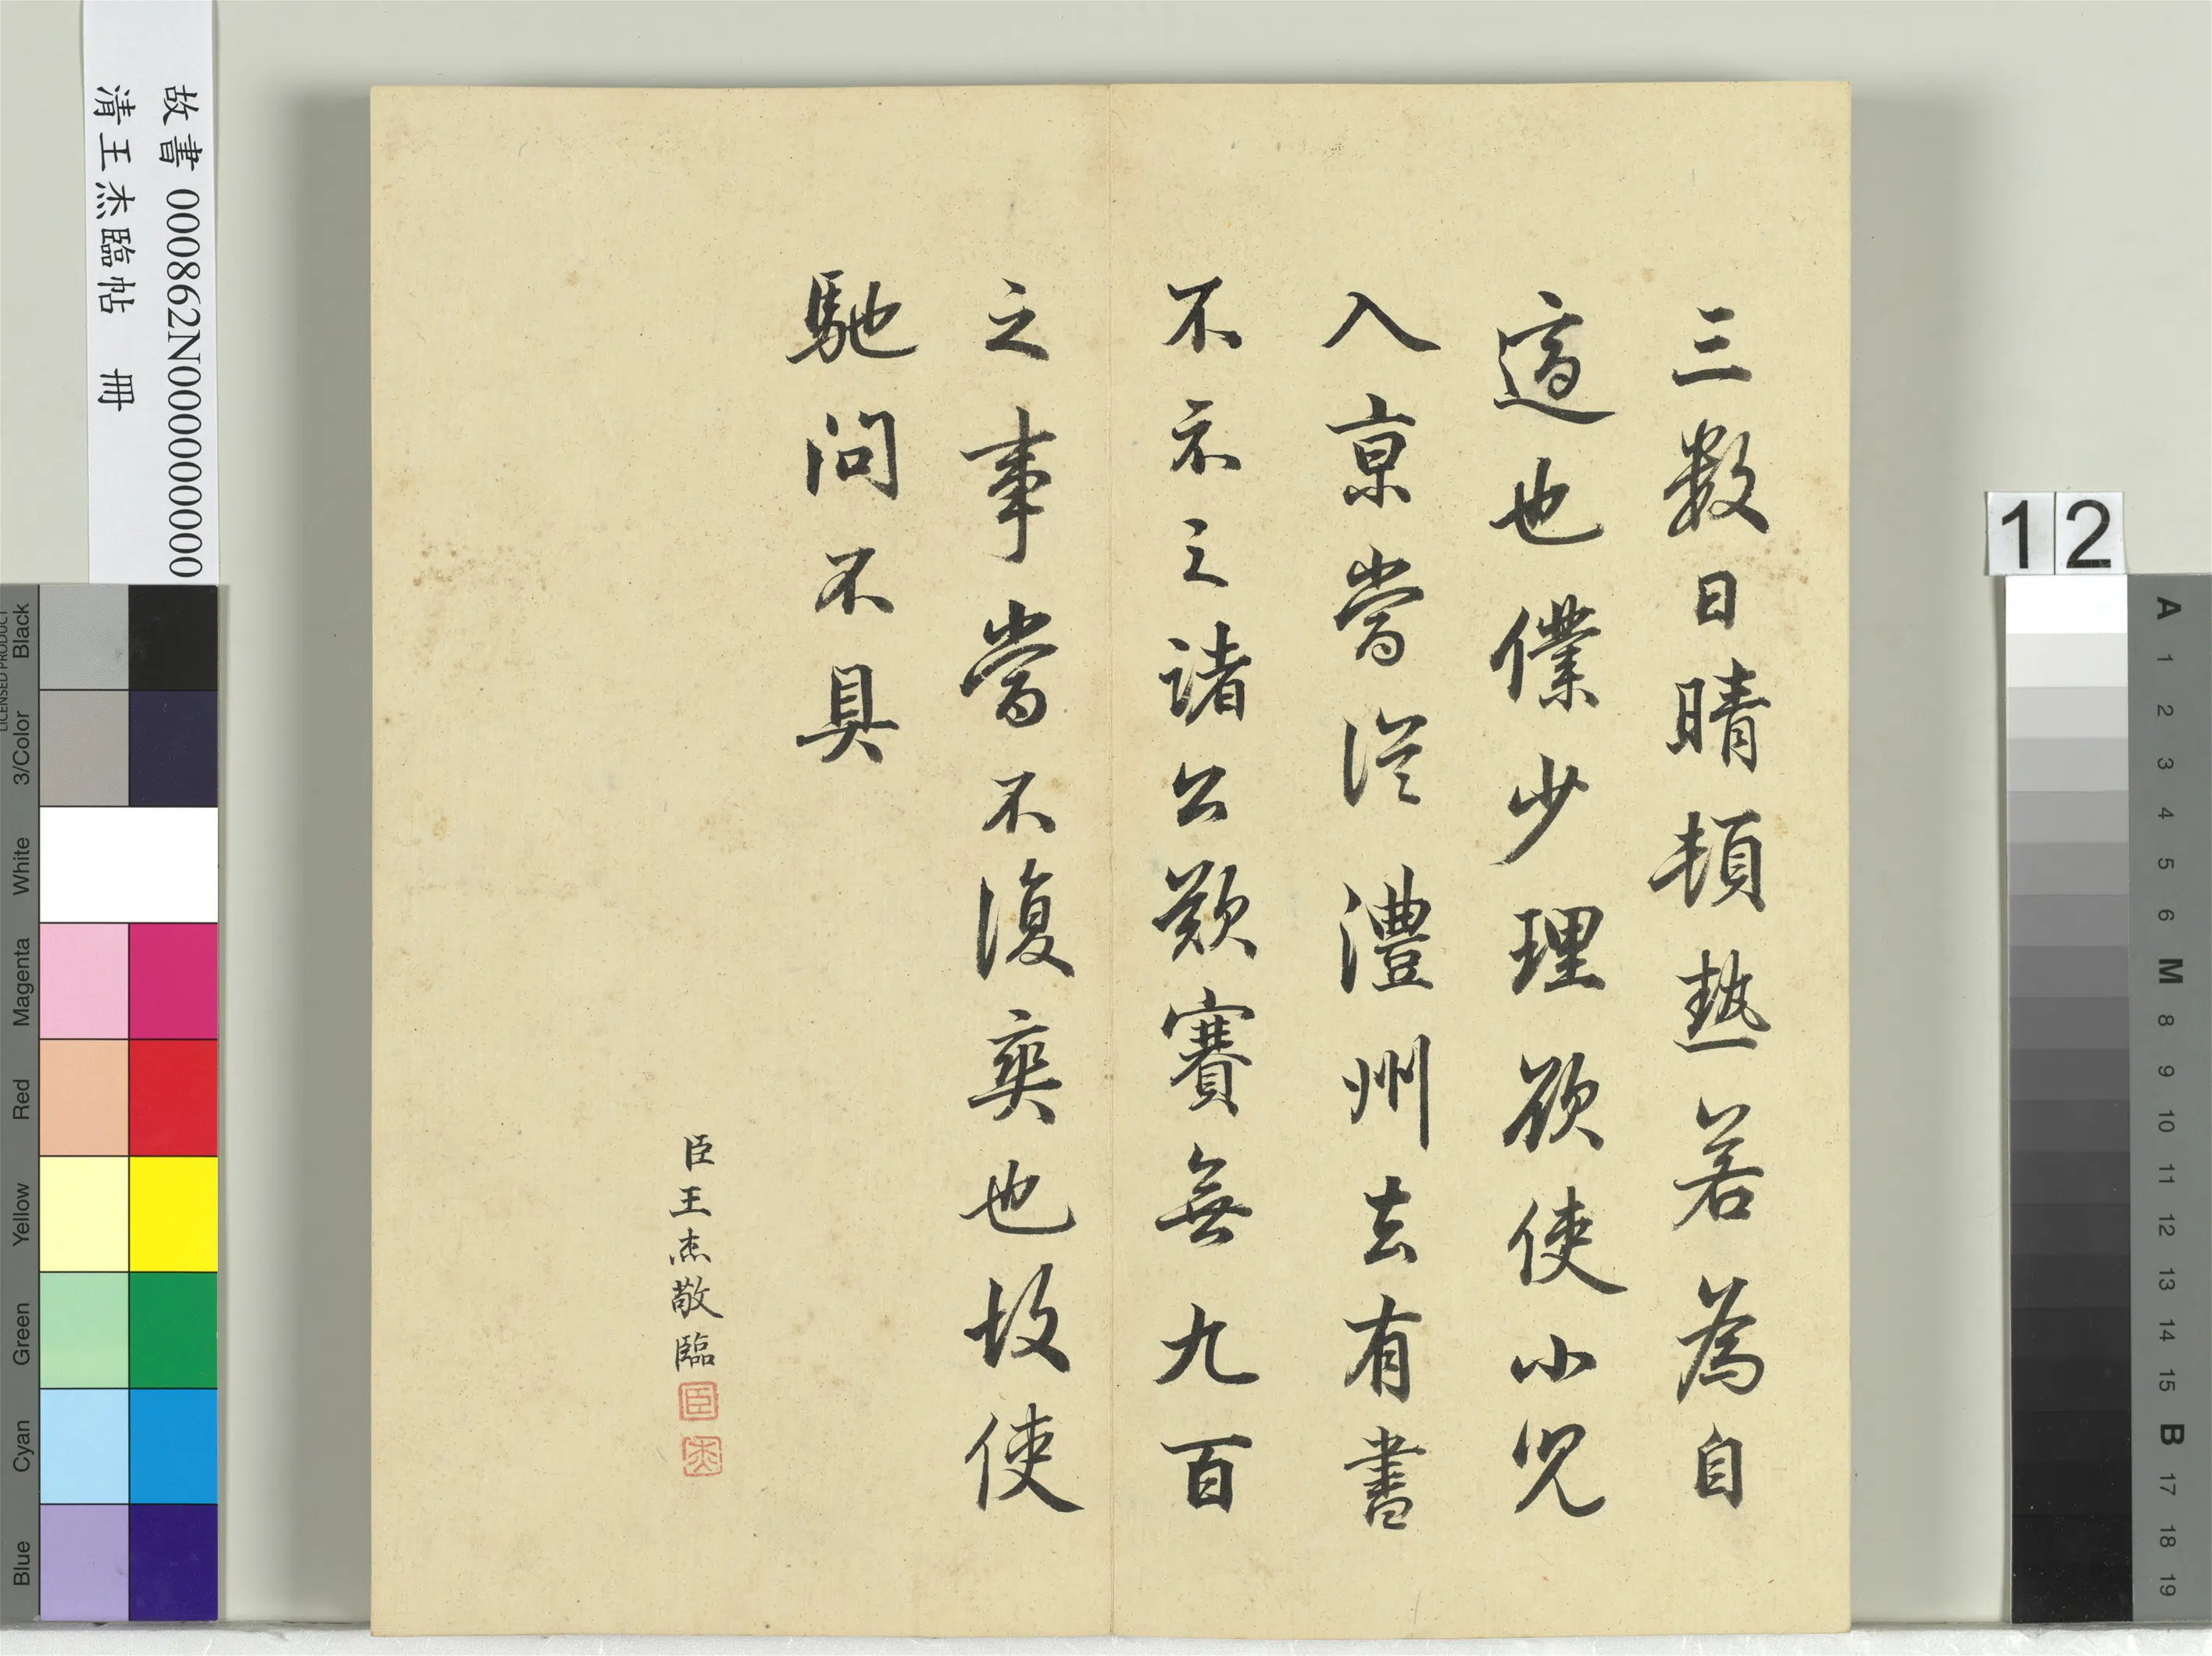 三数日晴頓熱若為自
適也僕少理欲使小兒
入京嘗從澧州去有書
不示之諸公歎賽無九百
之事嘗不復奕也故使
馳问不具
臣王杰敬臨
臣
杰
故書 000862N000000000
清王杰臨帖 冊
12
Black
3/Color
White
Magenta
Red
Yellow
Green
Cyan
Blue
A
1
2
3
4
5
6
M
8
9
10
11
12
13
14
15
B
17
18
19